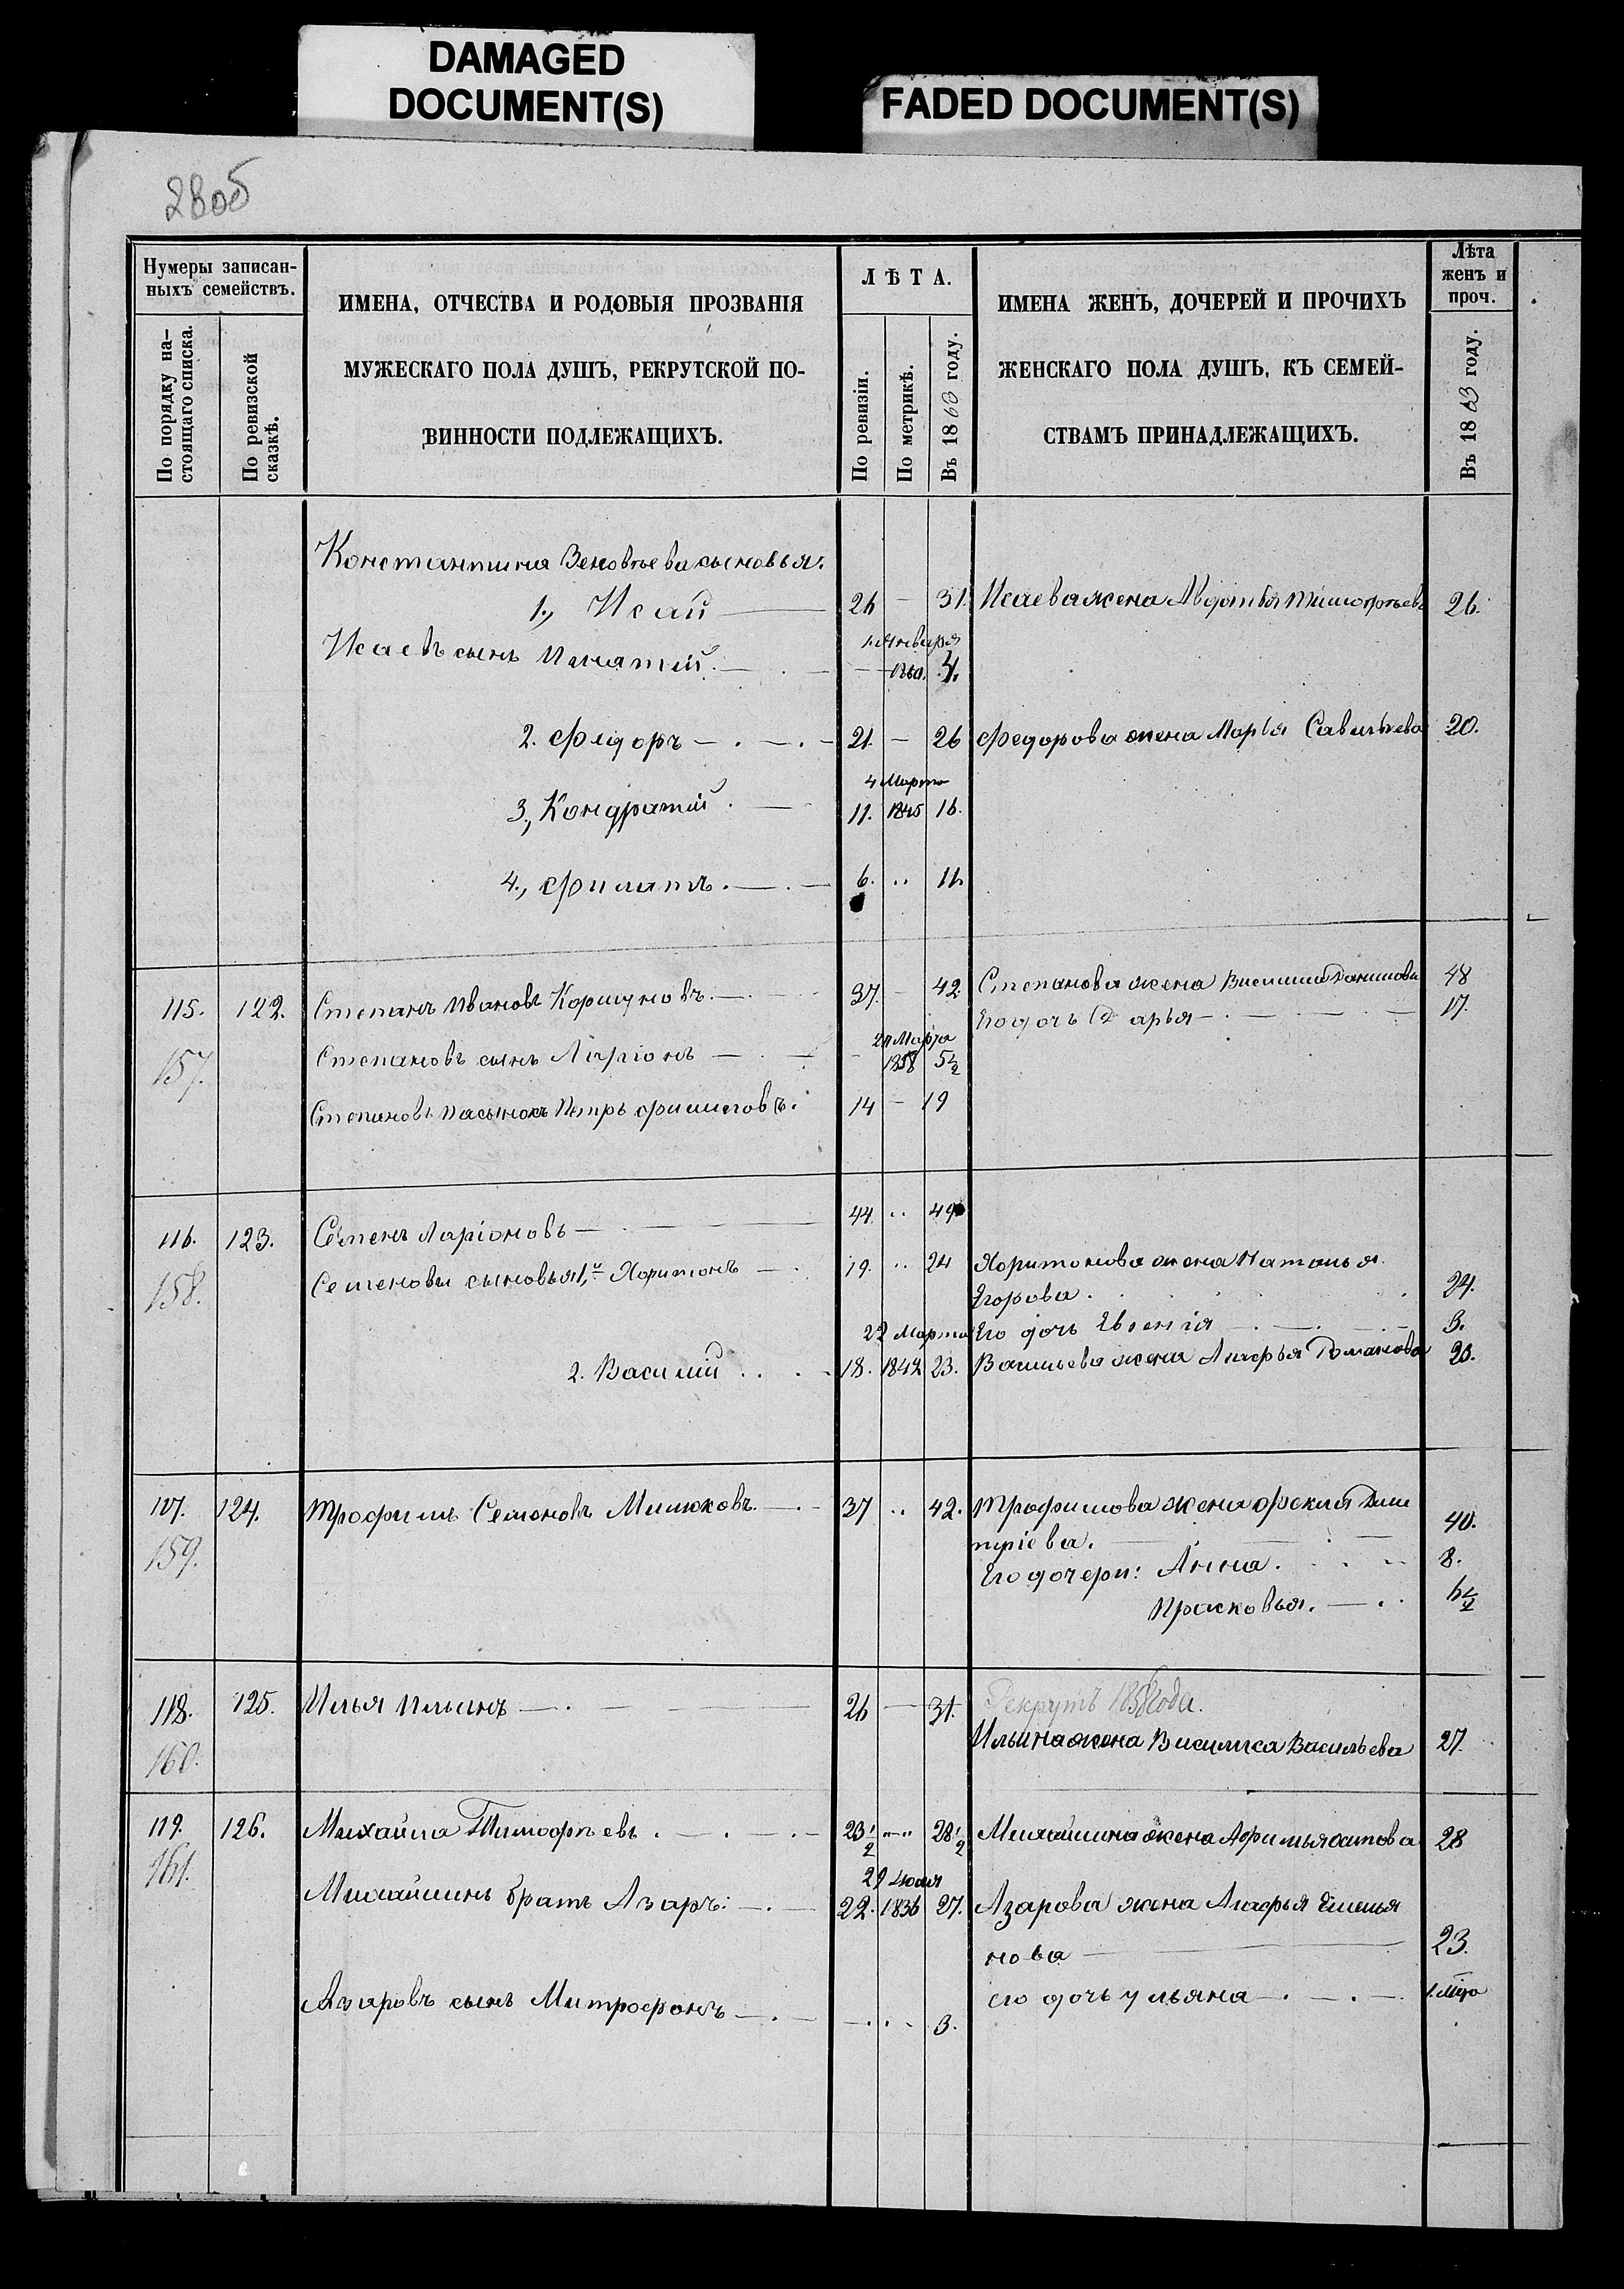 DAMAGED
DOCUMENT(S)
FADED DOCUMENT(S)
28об
Нумеры записан-
ныхъ семействъ.
По порядку на-
стоящаго списка.
По ревизской
сказкѣ.
ИМЕНА, ОТЧЕСТВА И РОДОВЫЯ ПРОЗВАНІЯ
МУЖЕСКАГО ПОЛА ДУШЪ, РЕКРУТСКОЙ ПО-
ВИННОСТИ ПОДЛЕЖАЩИХЪ.
ЛѢТА.
По ревизіи.
По метрикѣ.
Въ 1863 году.
ИМЕНА ЖЕНЪ, ДОЧЕРЕЙ И ПРОЧИХЪ
ЖЕНСКАГО ПОЛА ДУШЪ, КЪ СЕМЕЙ-
СТВАМЪ ПРИНАДЛЕЖАЩИХЪ.
Лѣта
женъ и
проч.
Въ 1863 году.
Константина Зеновьева сыновья:
1., Исай — 26 — 31. Исаева жена Авдотья Тимофѣева 26.
1 января
Исаевъ сынъ Игнатій. — —
2. Федоръ — . — . — 21. — 26 Федорова жена Марья Савельева 20.
4 Марта
3., Кондратій . — 11. 1845 16.
4., Филатъ . — . — 6. .. 11.
115. 122. Степанъ Ивановъ Коршуновъ. — 37. — 42. Степанова жена 48
Его дочь Дарья — . — . — . — 17.
157. Степановъ сынъ Ларіонъ — . — Марта 1858 5½
Степановъ пасынокъ Петръ 14 — 19
116. 123. Семенъ Ларіоновъ — . — — 44. .. 49
158. Семеновы сыновья 1,й Харитонъ — . 19. .. 24 Харитонова жена Наталья
Егорова . . . . 24.
Его дочь Евгенія — . — . — 3.
22 Марта
2. Василій . . . . 18. 23. Васильева жена Агафья Романова 23.
117. 124. Трофимъ Семеновъ Милюковъ. — . — 37 .. 42. Трофимова жена Фекла Дми
тріева. — — 40.
159. Его дочери: Анна. . . — 8.
Прасковья. — . .
118. 125. Илья Ильинъ — . — — 26 — 31. Рекрутъ 1858 года.
160. Ильина жена Василиса Васильева 27.
119. 126. Михайла Тимофѣевъ . — . — . — 23½ — .. 28½ Михайлина жена 28
161. 29 Іюля
Михайлинъ братъ Азаръ: — . — 22. 1836 27. Азарова жена Агафья Емелья
нова — 23.
его дочь Ульяна — . — . —
Азаровъ сынъ Митрофанъ — . — — . . — 3.